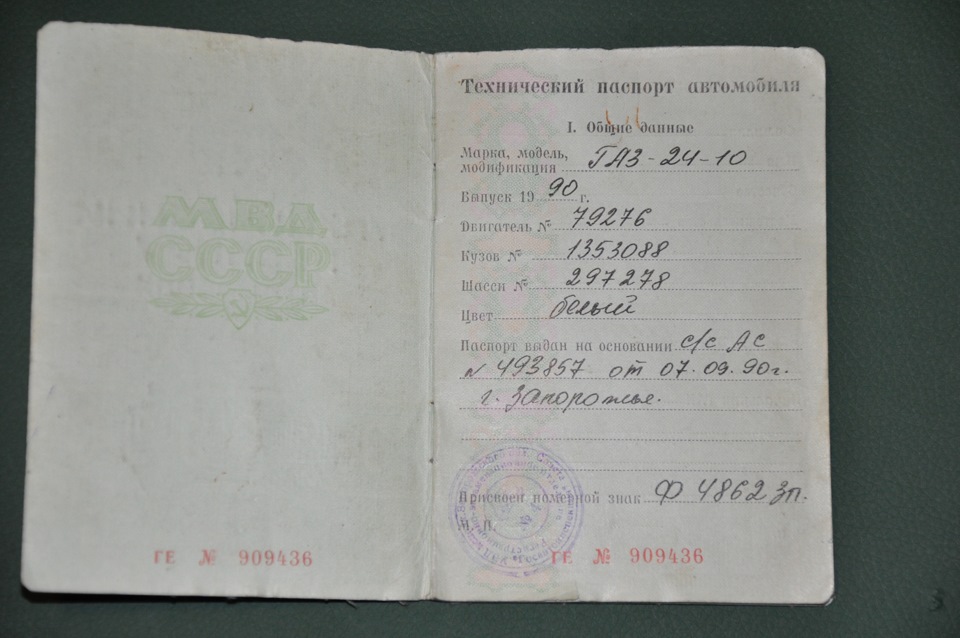 МВД
СССР
ГЕ № 909436
Технический паспорт автомобиля
I. Общие данные
Марка, модель,
модификация ГАЗ-24-10
Выпуск 1990 г.
Двигатель № 79276
Кузов № 1353088
Шасси № 297278
Цвет белый
Паспорт выдан на основании с/с АС
№ 493857 от 07.09.90г.
г. Запорожье.
Присвоен номерной знак Ф 4862 Зп.
М. П.
ГЕ № 909436